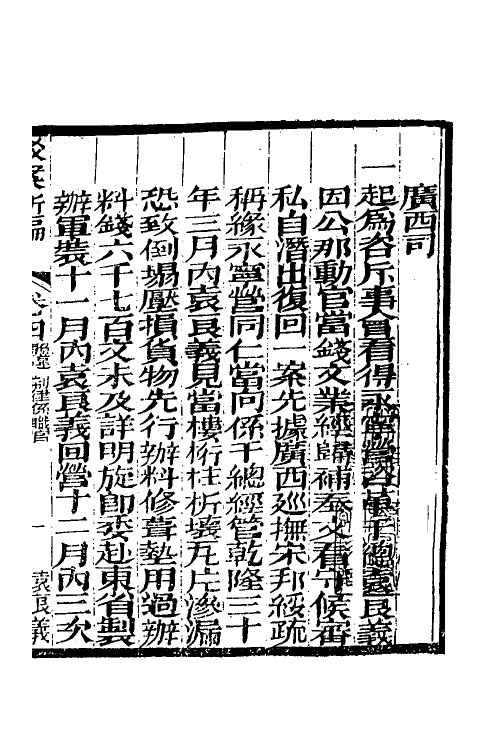 廣西司
一起爲咨斥事會看得永寧營千總袁良義
因公那動官當錢文業經歸補奉文看守候審
私自潛出復回一案先據廣西廵撫宋邦綏疏
稱緣永寧營同仁當向係千總經管乾隆三十
年三月內袁良義見當樓桁柱析壞瓦片滲漏
恐致倒塲壓損貨物先行辦料修葺墊用過辦
料錢六千七百文未及詳明旋卽委赴東省製
辦軍裝十一月內袁良義回營十二月內三次
駁案新編
卷四
制律係職官
一
袁良義